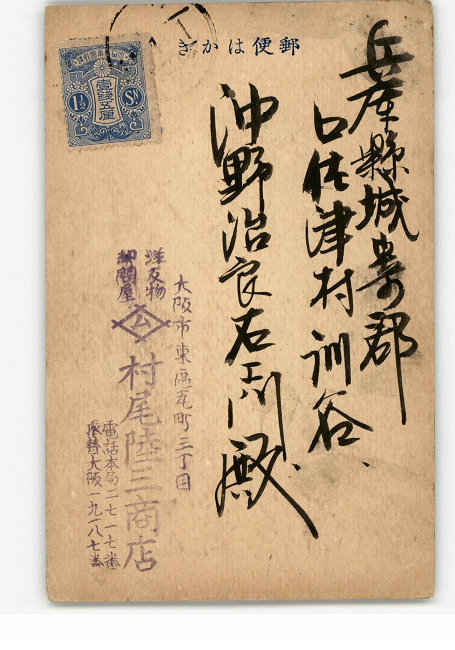 郵便はかき
兵庫縣城嵜郡
口佐津村訓谷
沖野治良右エ門殿
大阪市東區瓦町三丁目
洋反物
卸問屋
村尾陸三商店
電話本局二七一七番
振替大阪一九一八七番
壹銭五厘
1½
Sn